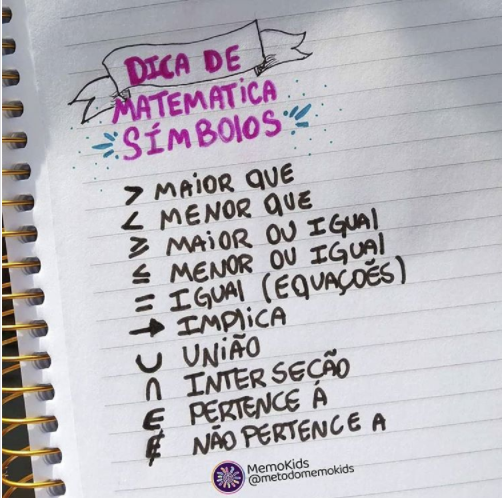 DICA DE
MATEMATICA
SÍMBOLOS
> MAIOR QUE
< MENOR QUE
≥ MAIOR OU IGUAL
≤ MENOR OU IGUAL
= IGUAL (EQUAÇÕES)
→ IMPLICA
∪ UNIÃO
∩ INTERSEÇÃO
∈ PERTENCE À
∉ NÃO PERTENCE A
MemoKids
@metodomemokids